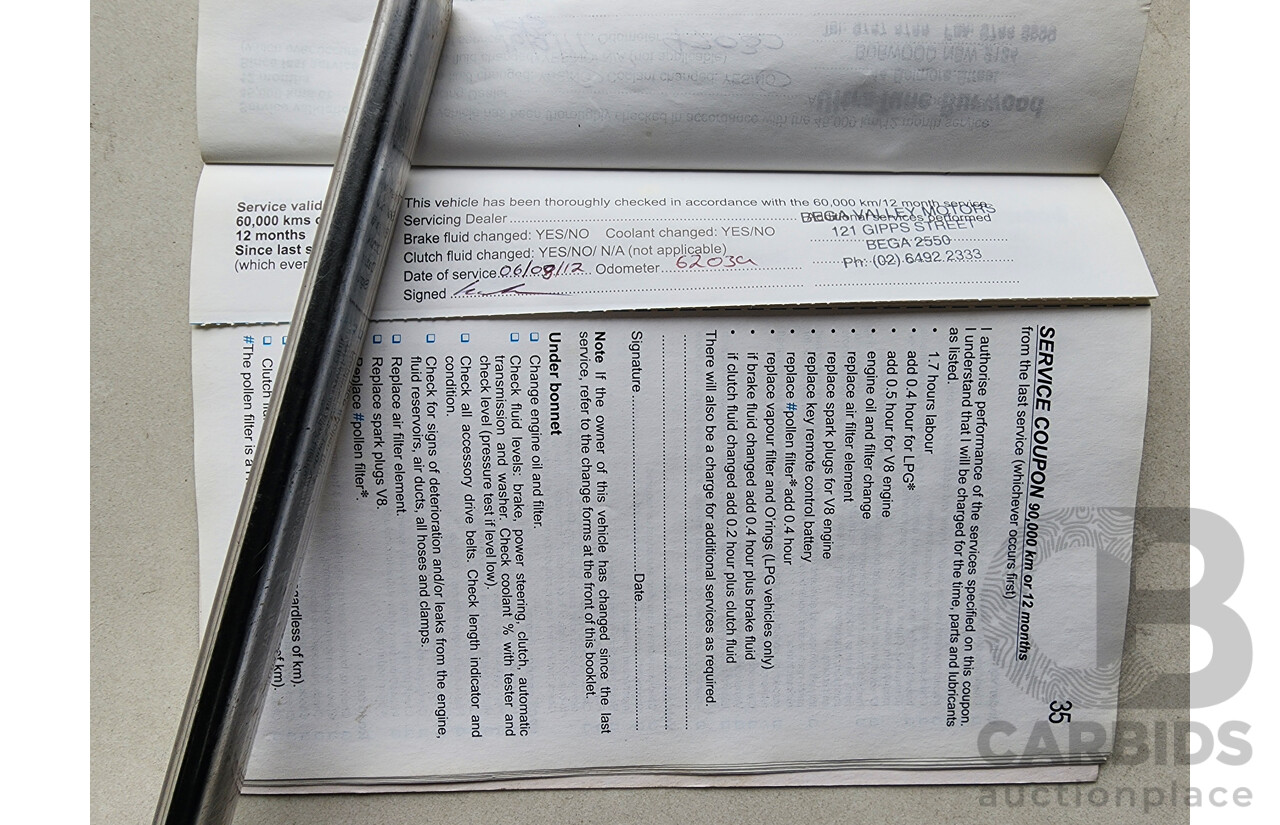 Service valid
60,000 kms
12 months
Since last s
(which ever
This vehicle has been thoroughly checked in accordance with the 60,000 km/12 month service
Servicing Dealer
Additional services performed
Brake fluid changed: YES/NO Coolant changed: YES/NO
Clutch fluid changed: YES/NO/ N/A (not applicable)
Date of service 06/08/12 Odometer 62039
Signed
BEGA VALLEY MOTORS
121 GIPPS STREET
BEGA 2550
Ph: (02) 6492 2333
35
SERVICE COUPON 90,000 km or 12 months
from the last service (whichever occurs first)
I authorise performance of the services specified on this coupon.
I understand that I will be charged for the time, parts and lubricants
as listed.
• 1.7 hours labour
• add 0.4 hour for LPG*
• add 0.5 hour for V8 engine
• engine oil and filter change
• replace air filter element
• replace spark plugs for V8 engine
• replace key remote control battery
• replace #pollen filter* add 0.4 hour
• replace vapour filter and O'rings (LPG vehicles only)
• if brake fluid changed add 0.4 hour plus brake fluid
• if clutch fluid changed add 0.2 hour plus clutch fluid
There will also be a charge for additional services as required.
Signature Date
Note If the owner of this vehicle has changed since the last
service, refer to the change forms at the front of this booklet.
Under bonnet
❑ Change engine oil and filter.
❑ Check fluid levels: brake, power steering, clutch, automatic
transmission and washer. Check coolant % with tester and
check level (pressure test if level low).
❑ Check all accessory drive belts. Check length indicator and
condition.
❑ Check for signs of deterioration and/or leaks from the engine,
fluid reservoirs, air ducts, all hoses and clamps.
❑ Replace air filter element.
❑ Replace spark plugs V8.
Replace #pollen filter*.
ardless of km).
❑ Clutch
of km).
#The pollen filter is a
CARBIDS
auctionplace